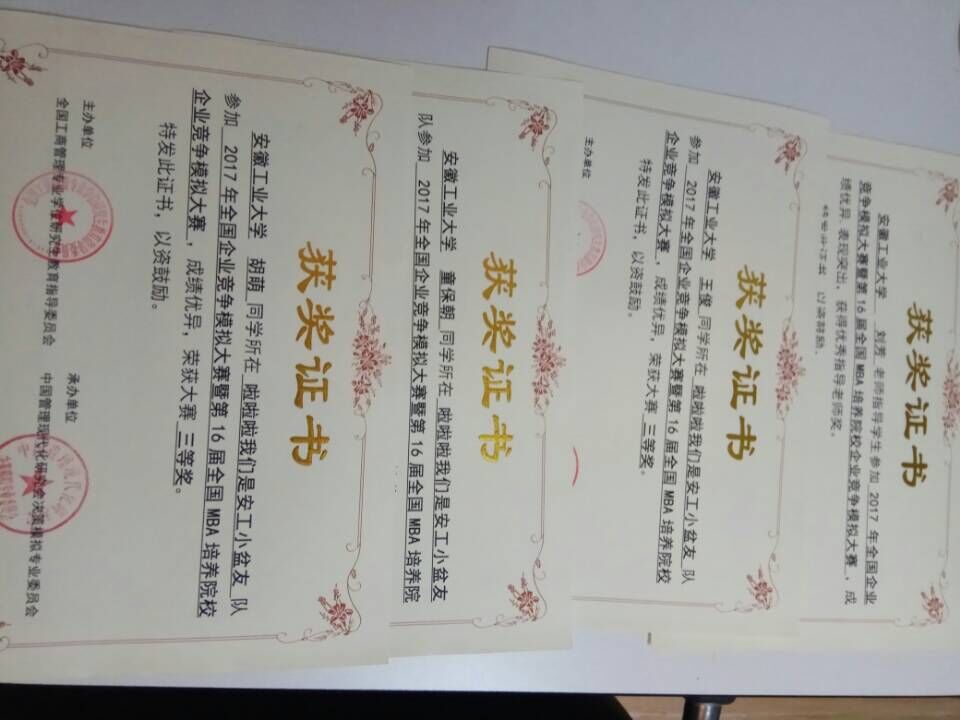 获奖证书
安徽工业大学 胡萌 同学所在 啦啦啦我们是安工小盆友 队
参加 2017 年全国企业竞争模拟大赛暨第 16 届全国 MBA 培养院校
企业竞争模拟大赛 ，成绩优异，荣获大赛 三等奖 。
特发此证书，以资鼓励。
主办单位
全国工商管理专业学位研究生教育指导委员会
承办单位
中国管理现代化研究会决策模拟专业委员会
获奖证书
安徽工业大学 童保朝 同学所在 啦啦啦我们是安工小盆友
队参加 2017 年全国企业竞争模拟大赛暨第 16 届全国 MBA 培养院
获奖证书
安徽工业大学 王俊 同学所在 啦啦啦我们是安工小盆友 队
参加 2017 年全国企业竞争模拟大赛暨第 16 届全国 MBA 培养院校
企业竞争模拟大赛 ，成绩优异，荣获大赛 三等奖 。
特发此证书，以资鼓励。
主办单位
获奖证书
安徽工业大学 刘芳 老师指导学生参加 2017 年全国企业
竞争模拟大赛暨第 16 届全国 MBA 培养院校企业竞争模拟大赛 ，成
绩优异，表现突出，获得优秀指导老师奖。
特发此证书，以资鼓励。